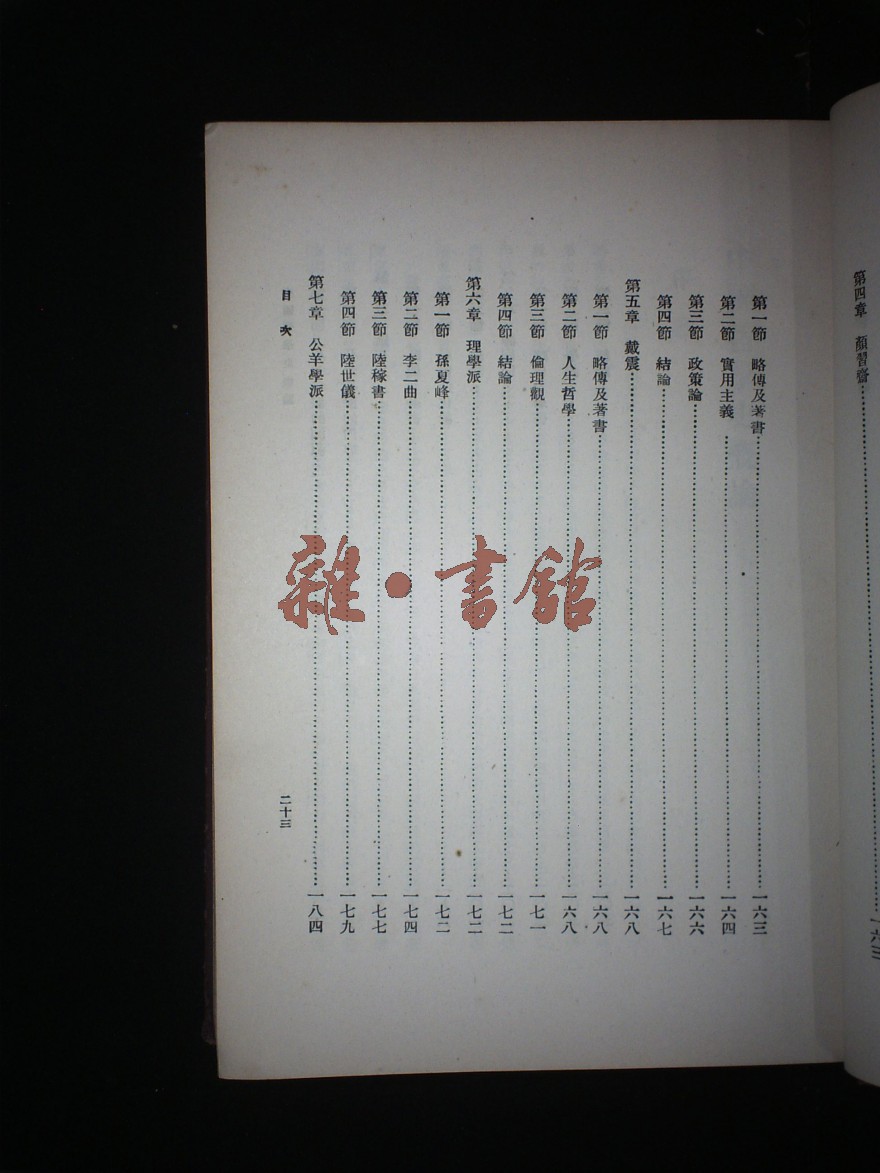 第四章　顏習齋……一六三
第一節　略傳及著書……一六三
第二節　實用主義……一六四
第三節　政策論……一六六
第四節　結論……一六七
第五章　戴震……一六八
第一節　略傳及著書……一六八
第二節　人生哲學……一六八
第三節　倫理觀……一七一
第四節　結論……一七二
第六章　理學派……一七二
第一節　孫夏峰……一七二
第二節　李二曲……一七四
第三節　陸稼書……一七七
第四節　陸世儀……一七九
第七章　公羊學派……一八四
目次　二十三
雜·書館